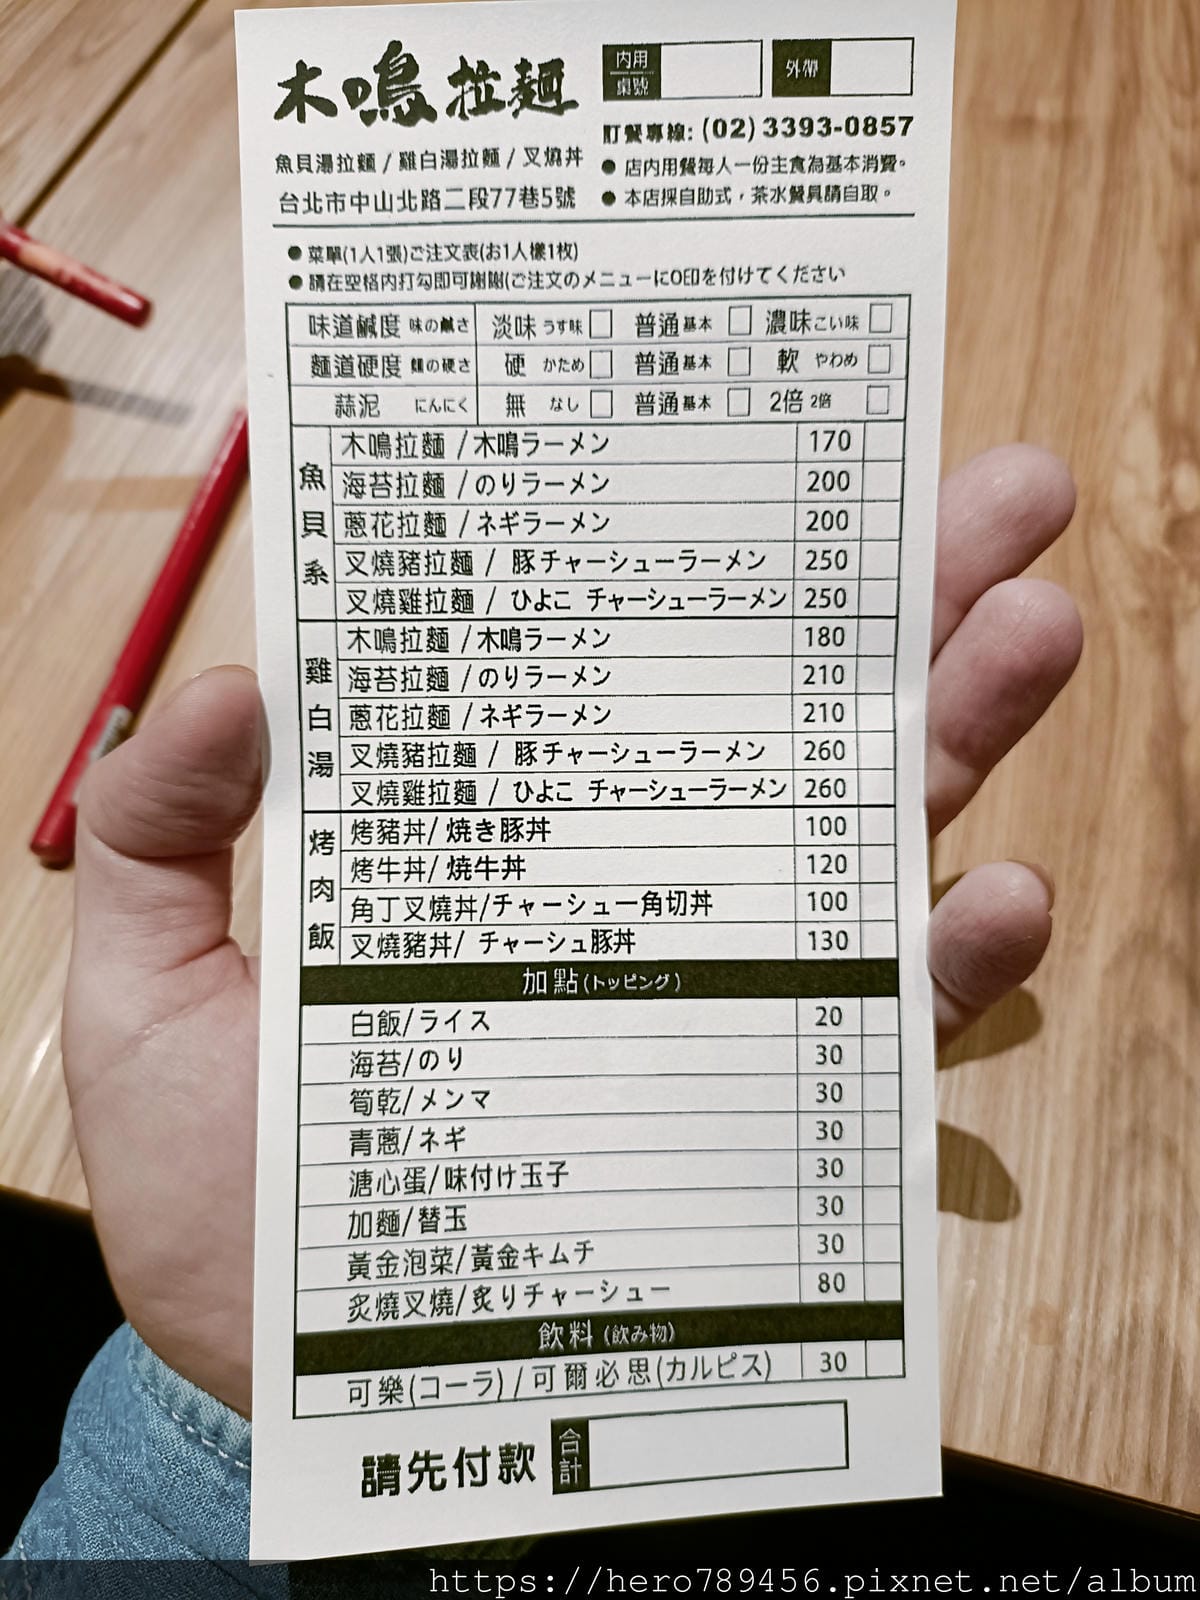 木鳴拉麵
內用
桌號
外帶
訂餐專線: (02) 3393-0857
魚貝湯拉麵 / 雞白湯拉麵 / 叉燒丼
● 店內用餐每人一份主食為基本消費。
台北市中山北路二段77巷5號
● 本店採自助式，茶水餐具請自取。
● 菜單(1人1張)ご注文表(お1人樣1枚)
● 請在空格內打勾即可謝謝(ご注文のメニューにO印を付けてください
味道鹹度 味の鹹さ 淡味 うす味 □ 普通 基本 □ 濃味 こい味 □
麵道硬度 麵の硬さ 硬 かため □ 普通 基本 □ 軟 やわめ □
蒜泥 にんにく 無 なし □ 普通 基本 □ 2倍 2倍 □
魚貝系
木鳴拉麵 / 木鳴ラーメン 170
海苔拉麵 / のりラーメン 200
蔥花拉麵 / ネギラーメン 200
叉燒豬拉麵 / 豚チャーシューラーメン 250
叉燒雞拉麵 / ひよこ チャーシューラーメン 250
雞白湯
木鳴拉麵 / 木鳴ラーメン 180
海苔拉麵 / のりラーメン 210
蔥花拉麵 / ネギラーメン 210
叉燒豬拉麵 / 豚チャーシューラーメン 260
叉燒雞拉麵 / ひよこ チャーシューラーメン 260
烤肉飯
烤豬丼/ 焼き豚丼 100
烤牛丼/ 焼牛丼 120
角丁叉燒丼/チャーシュー角切丼 100
叉燒豬丼/ チャーシュ豚丼 130
加點(トッピング)
白飯/ライス 20
海苔/のり 30
筍乾/メンマ 30
青蔥/ネギ 30
溏心蛋/味付け玉子 30
加麵/替玉 30
黃金泡菜/黃金キムチ 30
炙燒叉燒/炙りチャーシュー 80
飲料 (飲み物)
可樂(コーラ) / 可爾必思(カルピス) 30
請先付款
合計
https://hero789456.pixnet.net/album